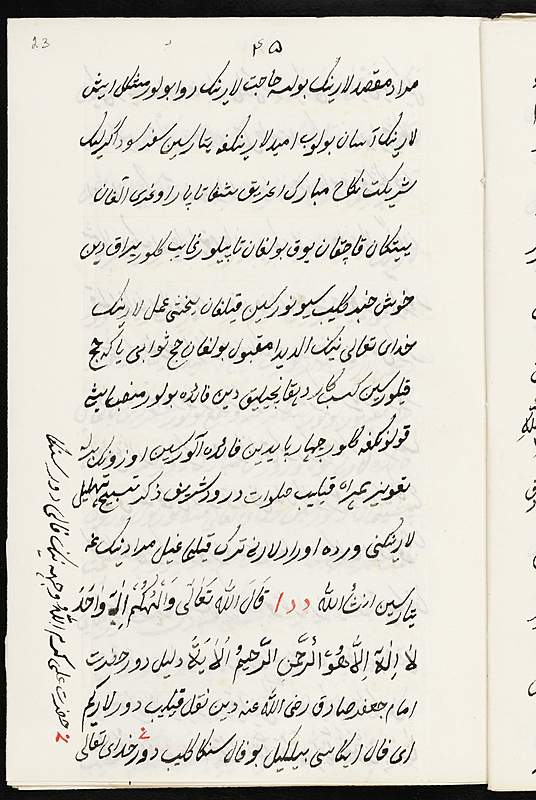 23
۴۵
مراد مقصد لارینک بولسه حاجت لارینک روا بولور مشکل ایش
لارینک آسان بولوب امید لارینکغه یتارسین سفر سوداگرلیک
شریکت نکاح مبارک اغریق شفا تاپار اوغری آلغان
ییتکان قاچقان یوق بولغان تاپیلور غایب کلور ییراق دین
خوش خبر کلیب سیونورسین قیلغان یخشی عمل لارینک
خدای تعالی نینک الدیدا مقبول بولغان حج ثوابی یا که حج
قیلورسین کسب کار دهقانچیلیق دین فائده بولور منصب ایش
قولونکغه کلور چهارپایدین فائده آلورسین اوزونک بیله
تعویذ همراه قیلیب صلوات درود شریف ذکر تسبیح تهلیل
لارینکنی ورده اوراد لارنی ترک قیلمغیل مرادینک غه
یتارسین ان شاء الله د د ا قَالَ اللهُ تَعَالَی وَاِلٰهُکُمْ اِلٰهٌ وَاحِدٌ
لَا اِلٰهَ اِلَّا هُوَ الرَّحْمٰنُ الرَّحِیمُ اَلْاٰیَةْ دلیل دور حضرت
امام جعفر صادق رضی الله عنه دین نقل قیلیب دورلار کیم
ای فال ایکاسی بیلکیل بو فال سنکا کلیب دور خدای تعالی
حضرت علی کرم الله وجهه نینک فالی دور سنکا